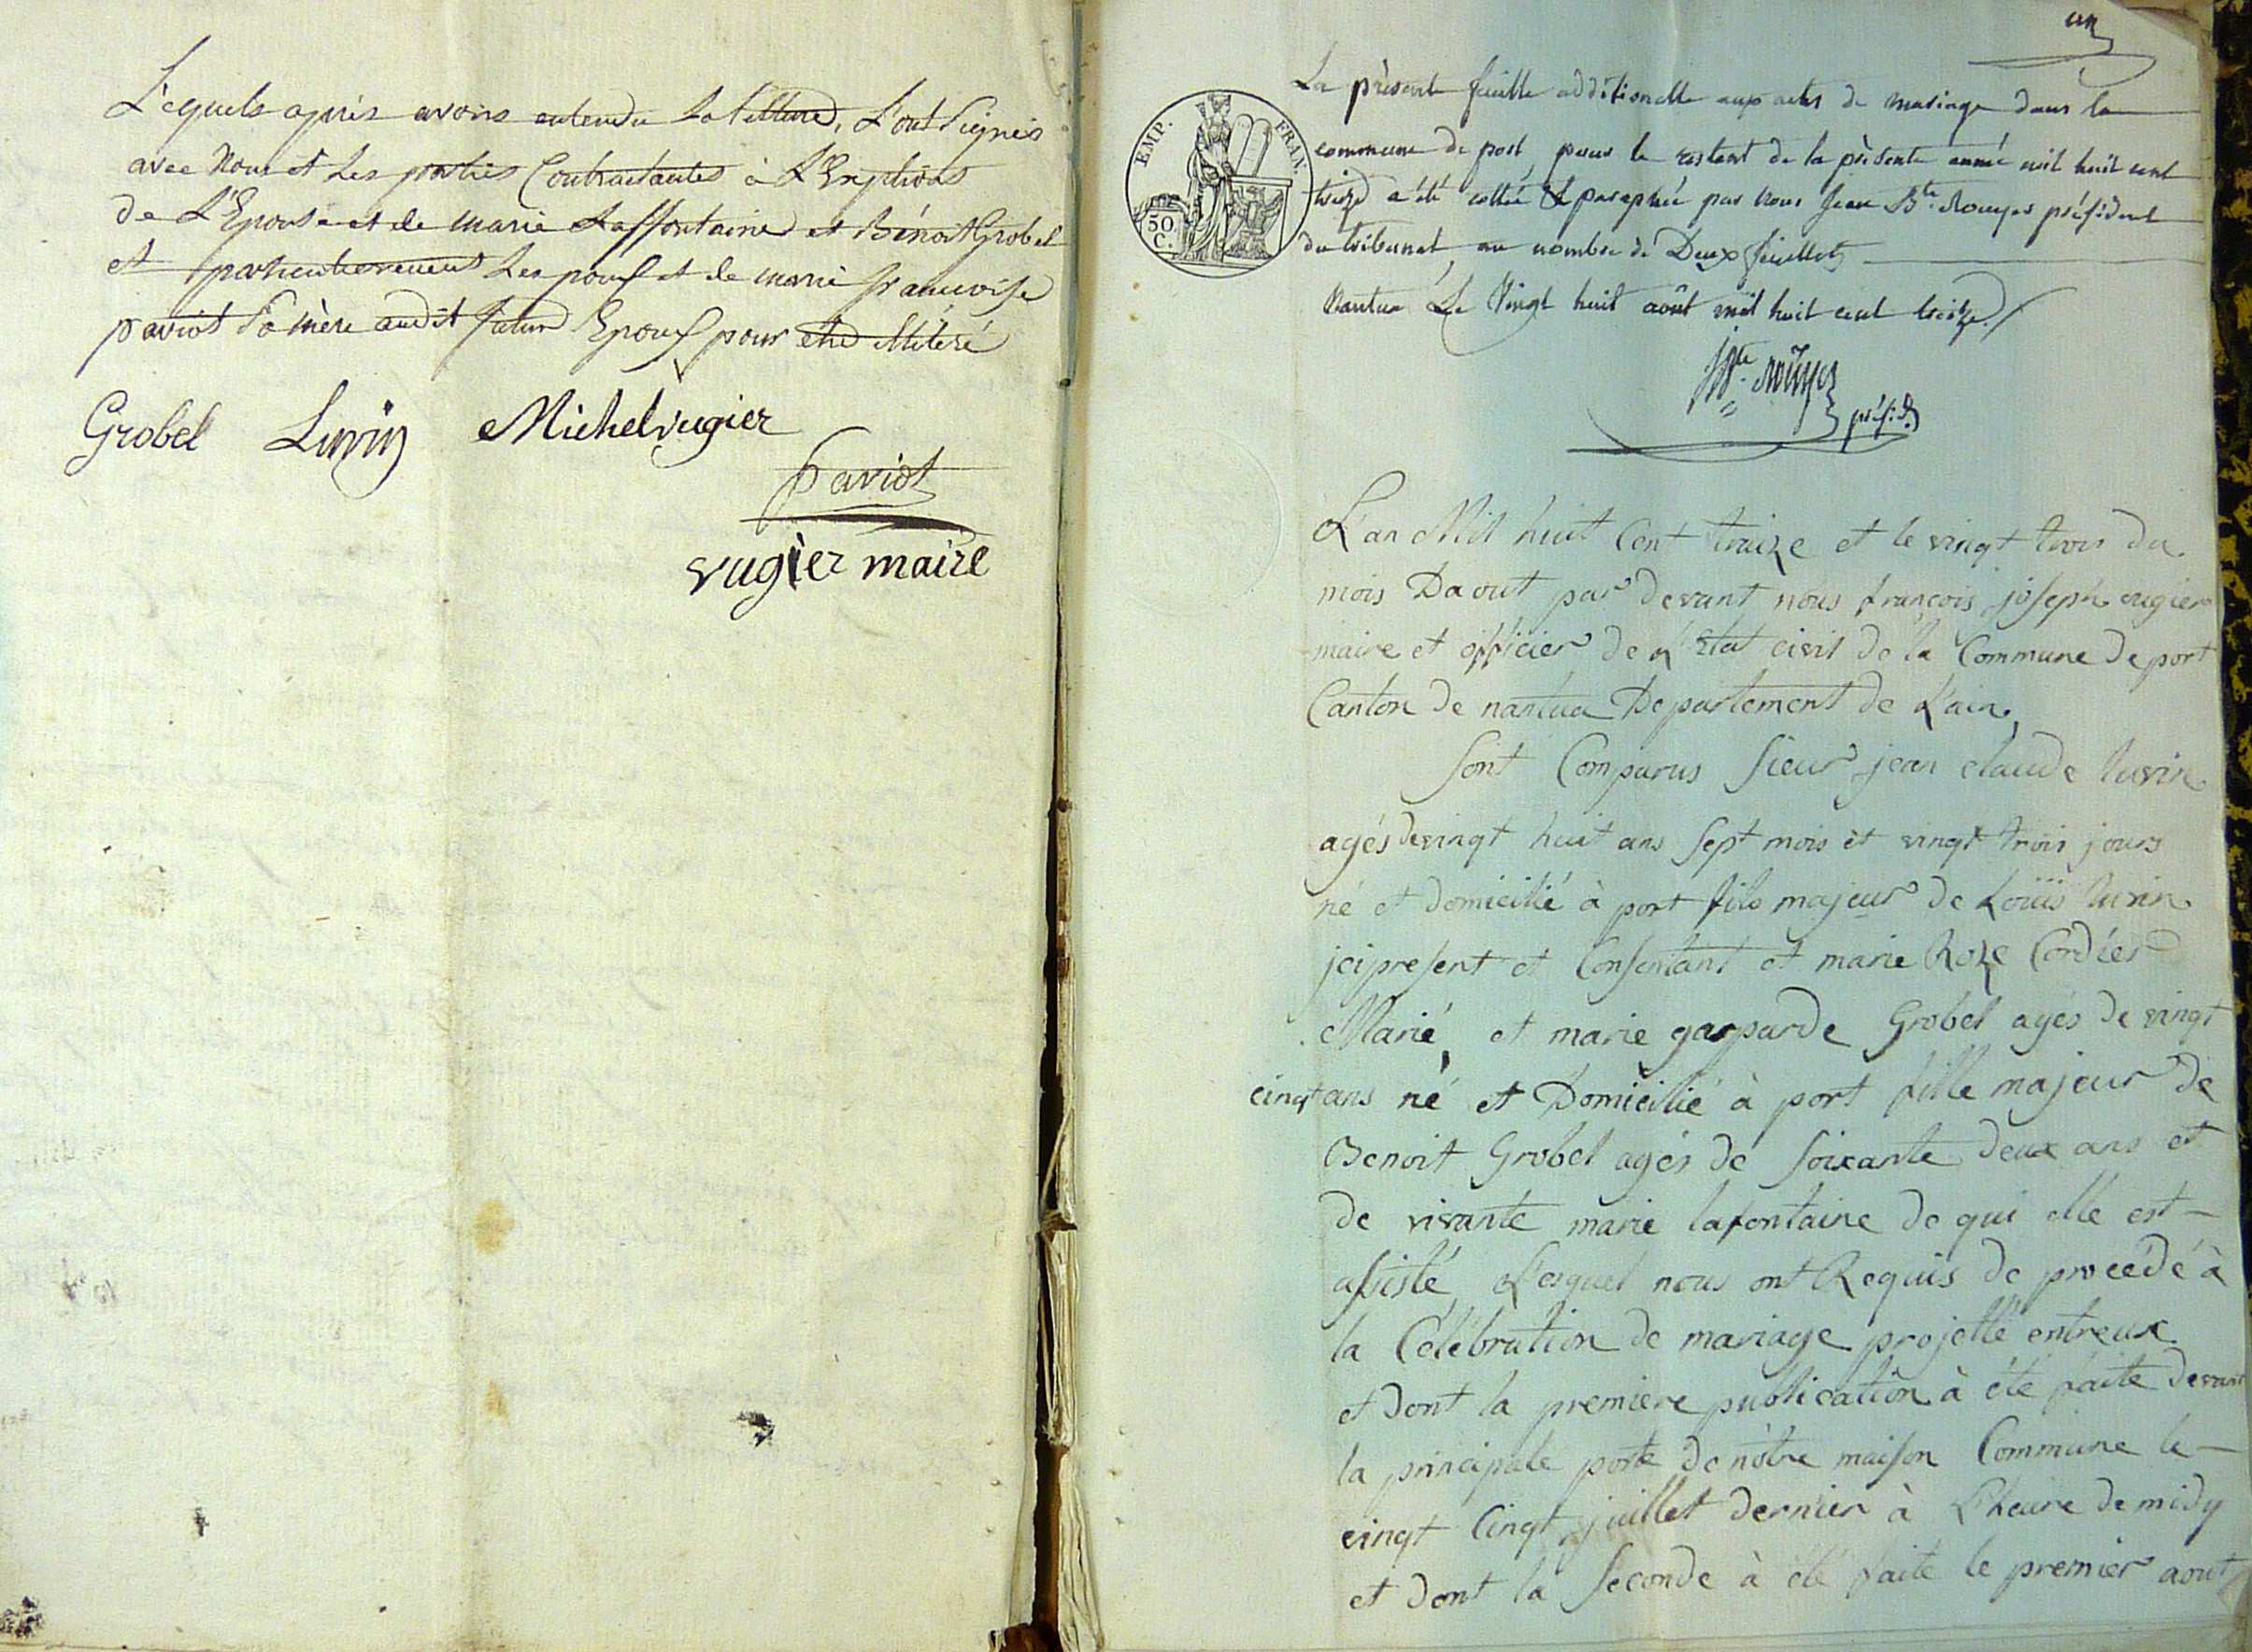 Lequels après avoirs entendu la lecture, L'ont Signés
avec Nous et les parties Contractantes à L'Exptions
de L'Epouse et de marie Laffontaine et Bénoit Grobel
et particulierement Les poux et de marie francoise
paviot Sa mère audit futur Epoux pour etre illitéré
Grobel Luvin Michel vugier
paviot
vugier maire
un
La présente feuille additionelle aux actes de mariage dans la
commune de port, pour le restant de la présente année mil huit cent
treize a été cottée & paraphée par nous Jean Bte. Rouyer président
du tribunal, au nombre de Deux feuillets
Nantua Le Vingt huit août mil huit cent treize./.
EMP. FRAN.
50. C.
JBte. Rouyer
présid.
L'an Mil huit Cent traize et le vingt trois du
mois Daout par devant nous françois joseph vugier
maire et officier de l'Etat civil de la Commune de port
Canton de nantua Departement de L'ain,
Sont Comparus Sieur jean claude luvin
agés de vingt huit ans Sept mois et vingt trois jours
né et domicilié à port fils majeur de Loüis luvin
jci present et Consentant et marie Roze Cordier
Marié, et marie gasparde Grobel agés de vingt
cinqt ans né et Domicilié à port fille majeur de
Benoit Grobel agés de Soixante deux ans et
de vivante marie lafontaine de qui elle est
assisté Lesquel nous ont Requis de procédé à
la Célébration de mariage projetté entreux
et dont la premiere publication à été faite devant
la principale porte de nôtre maison Commune le
vingt Cinqt juillet dernier à L'heure de midy
et dont la Seconde à été faite le premier aout